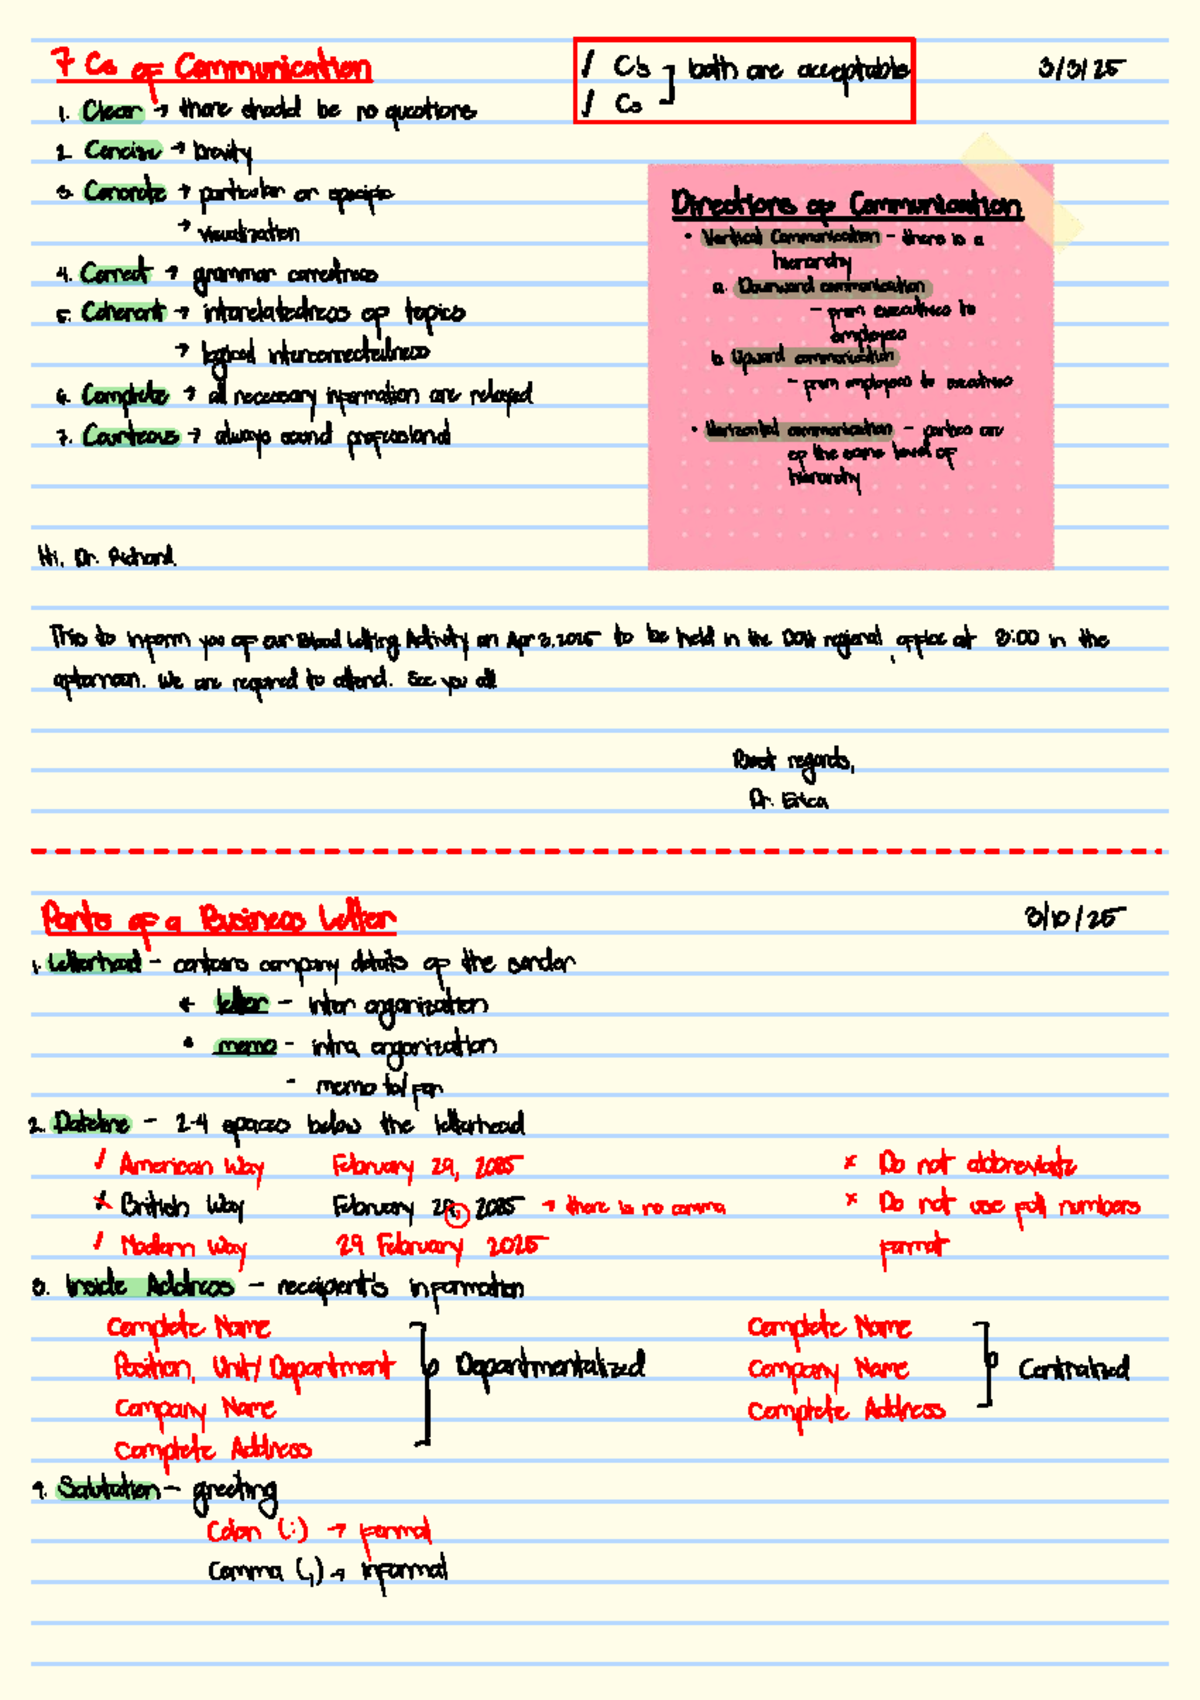 7 Cs of Communication
/ C's
/ Cs
both are acceptable
3/3/25
1. Clear → there should be no questions
2. Concise → brevity
3. Concrete → particular or specific
→ visualization
4. Correct → grammar correctness
5. Coherent → interrelatedness of topics
→ logical interconnectedness
6. Complete → all necessary information are relayed
7. Courteous → always sound professional
Directions of Communication
• Vertical Communication - there is a
hierarchy
a. Downward communication
- from executives to
employees
b. Upward communication
- from employees to executives
• Horizontal communication - parties are
of the same level of
hierarchy
Hi, Dr. Richard.
This to inform you of our Blood Letting Activity on Apr 3, 2025 to be held in the DOH regional office at 3:00 in the
afternoon. We are required to attend. See you all
Best regards,
Dr. Erica
Parts of a Business Letter
3/10/25
1. Letterhead - contains company details of the sender
letter - inter organization
• memo - intra organization
- memo to/ for
2. Dateline - 2-4 spaces below the letterhead
/ American Way February 29, 2025
x British Way February 29, 2025 → there is no comma
/ Modern Way 29 February 2025
x Do not abbreviate
x Do not use full numbers
format
3. Inside Address - recipient's information
Complete Name
Position, Unit/ Department
Company Name
Complete Address
Departmentalized
Complete Name
Company Name
Complete Address
Centralized
4. Salutation - greeting
Colon (:) → formal
Comma (,) → informal